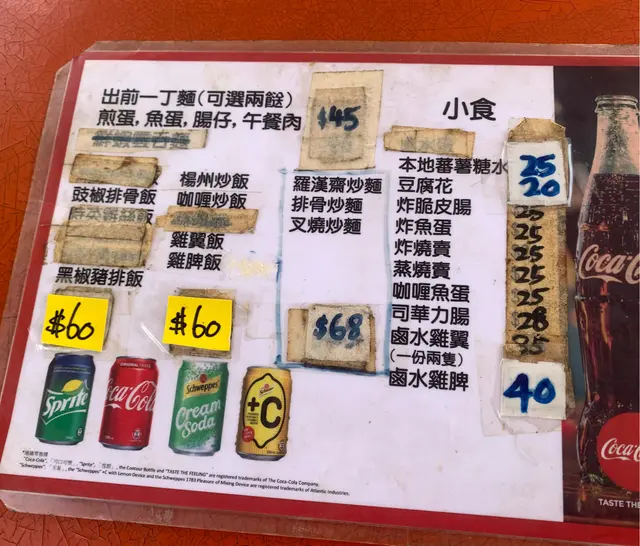 出前一丁麵(可選兩餸)
煎蛋,魚蛋,腸仔,午餐肉
$45
豉椒排骨飯
黑椒豬排飯
$60
楊州炒飯
咖喱炒飯
雞翼飯
雞脾飯
$60
羅漢齋炒麵
排骨炒麵
叉燒炒麵
$68
小食
本地蕃薯糖水 25
豆腐花 20
炸脆皮腸 25
炸魚蛋 25
炸燒賣 25
蒸燒賣 25
咖喱魚蛋 25
司華力腸 28
鹵水雞翼
(一份兩隻)
鹵水雞脾 40
Sprite
ORIGINAL TASTE
Coca-Cola
Schweppes
Cream
Soda
Schweppes
+C
"Coca-Cola", 「可口可樂」, "Sprite", 「雪碧」, the Contour Bottle and "TASTE THE FEELING" are registered trademarks of The Coca-Cola Company.
the "Schweppes" +C with Lemon Device and the Schweppes 1783 Pleasure of Mixing Device are registered trademarks of Atlantic Industries.
Coca-Co
Coca-Co
TASTE THE